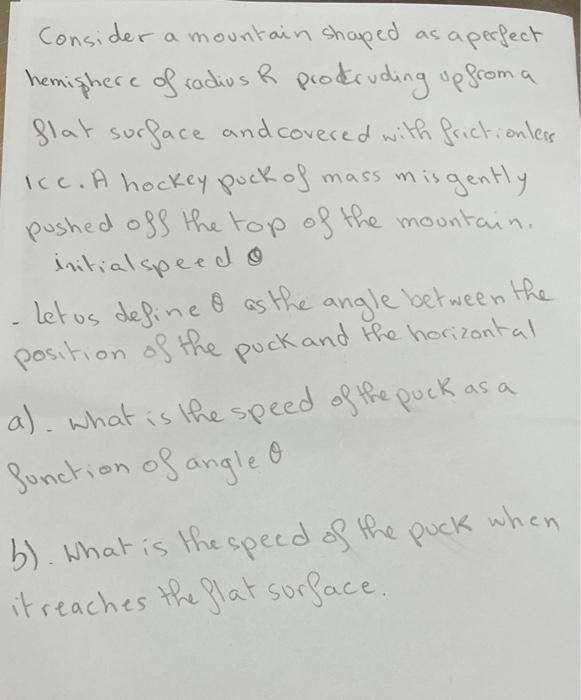 Consider a mountain shaped as a perfect
hemisphere of radius R protruding up from a
flat surface and covered with frictionless
ice. A hockey puck of mass m is gently
pushed off the top of the mountain.
initial speed 0
- Let us define θ as the angle between the
position of the puck and the horizontal
a). what is the speed of the puck as a
function of angle θ
b). What is the speed of the puck when
it reaches the flat surface.